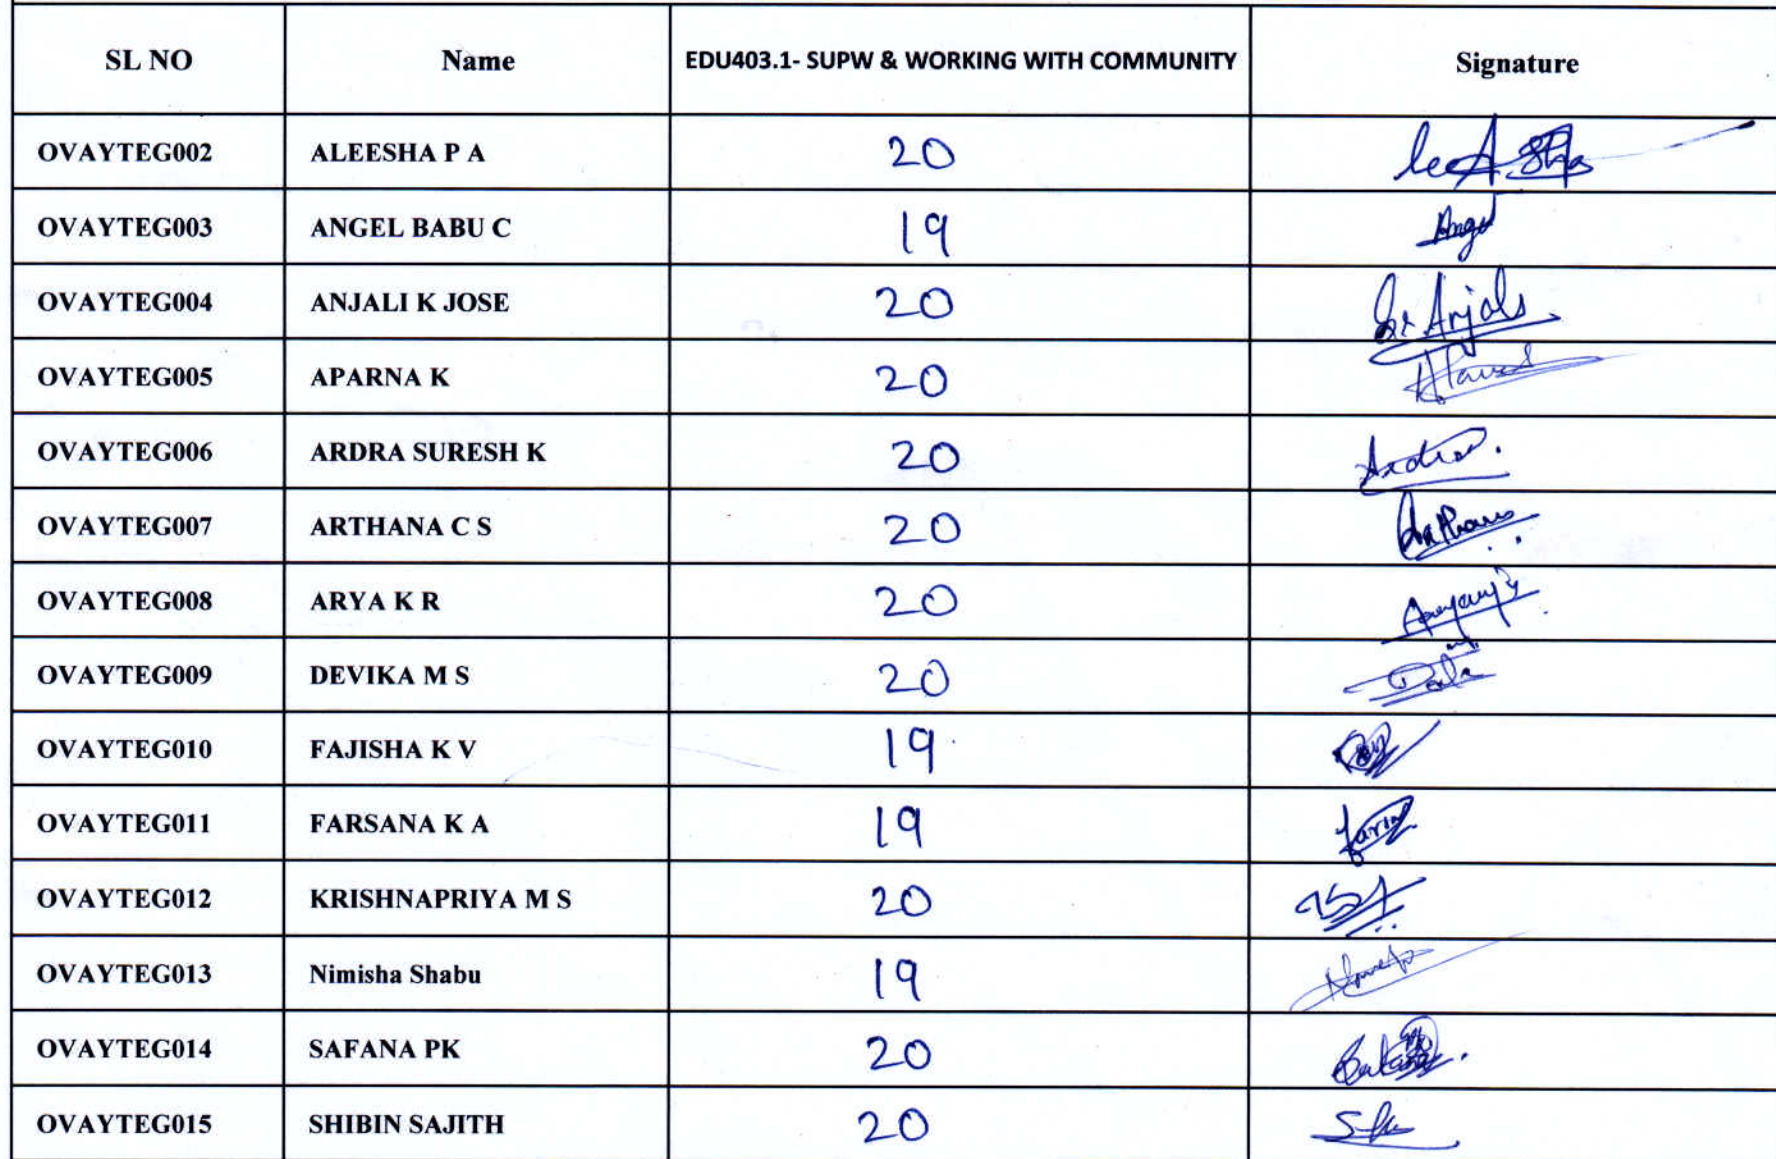 SL NO Name EDU403.1- SUPW & WORKING WITH COMMUNITY Signature
OVAYTEG002 ALEESHA P A 20
OVAYTEG003 ANGEL BABU C 19 Angel
OVAYTEG004 ANJALI K JOSE 20 Sr Anjali
OVAYTEG005 APARNA K 20
OVAYTEG006 ARDRA SURESH K 20 Ardra
OVAYTEG007 ARTHANA C S 20 Arthana
OVAYTEG008 ARYA K R 20
OVAYTEG009 DEVIKA M S 20
OVAYTEG010 FAJISHA K V 19
OVAYTEG011 FARSANA K A 19
OVAYTEG012 KRISHNAPRIYA M S 20
OVAYTEG013 Nimisha Shabu 19
OVAYTEG014 SAFANA PK 20
OVAYTEG015 SHIBIN SAJITH 20